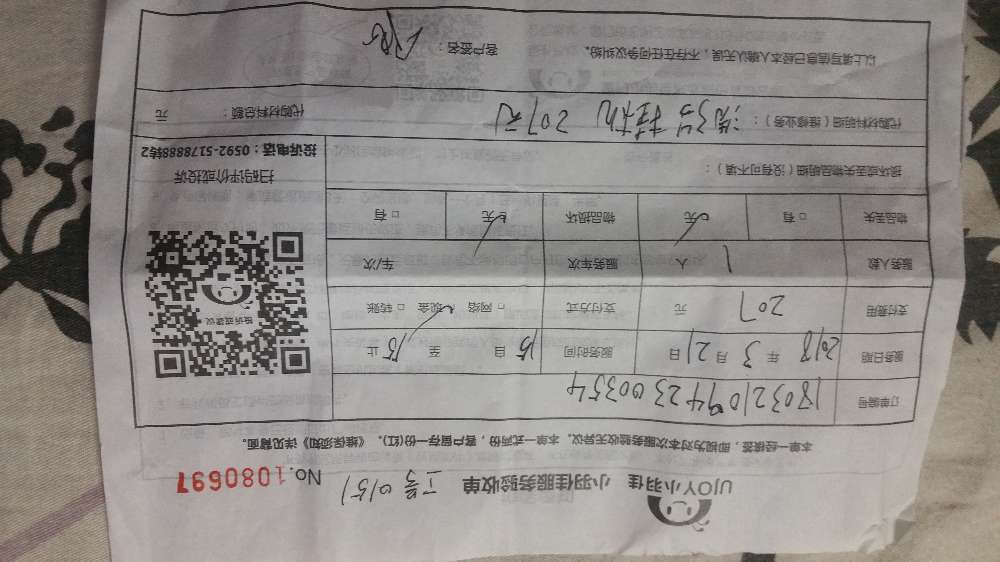 UJOY小羽佳 小羽佳服务验收单 工号 0151 No.1080697
本单一经填签，即视为对本次服务验收无异议。本单一式两份，客户留存一份(红)。《维保须知》详见背面。
订单编号 18032109442300354
服务日期 2018 年 3 月 21 日 服务时间 15 自 至 15 止
支付费用 207 元 支付方式 □ 网络 ✓现金 □ 转账
服务人数 1 人 服务车次 车/次
物品丢失 □ 有 ✓无 物品损坏 ✓无 □ 有
损坏或丢失物品明细（没有可不填）：
代购材料明细（维修业务）： 207元 代购材料总额： 元
以上填写信息已经本人确认无误，不存在任何争议纠纷。 客户签名：
投诉或建议
扫码评价或投诉
投诉电话：0592-5178888转2